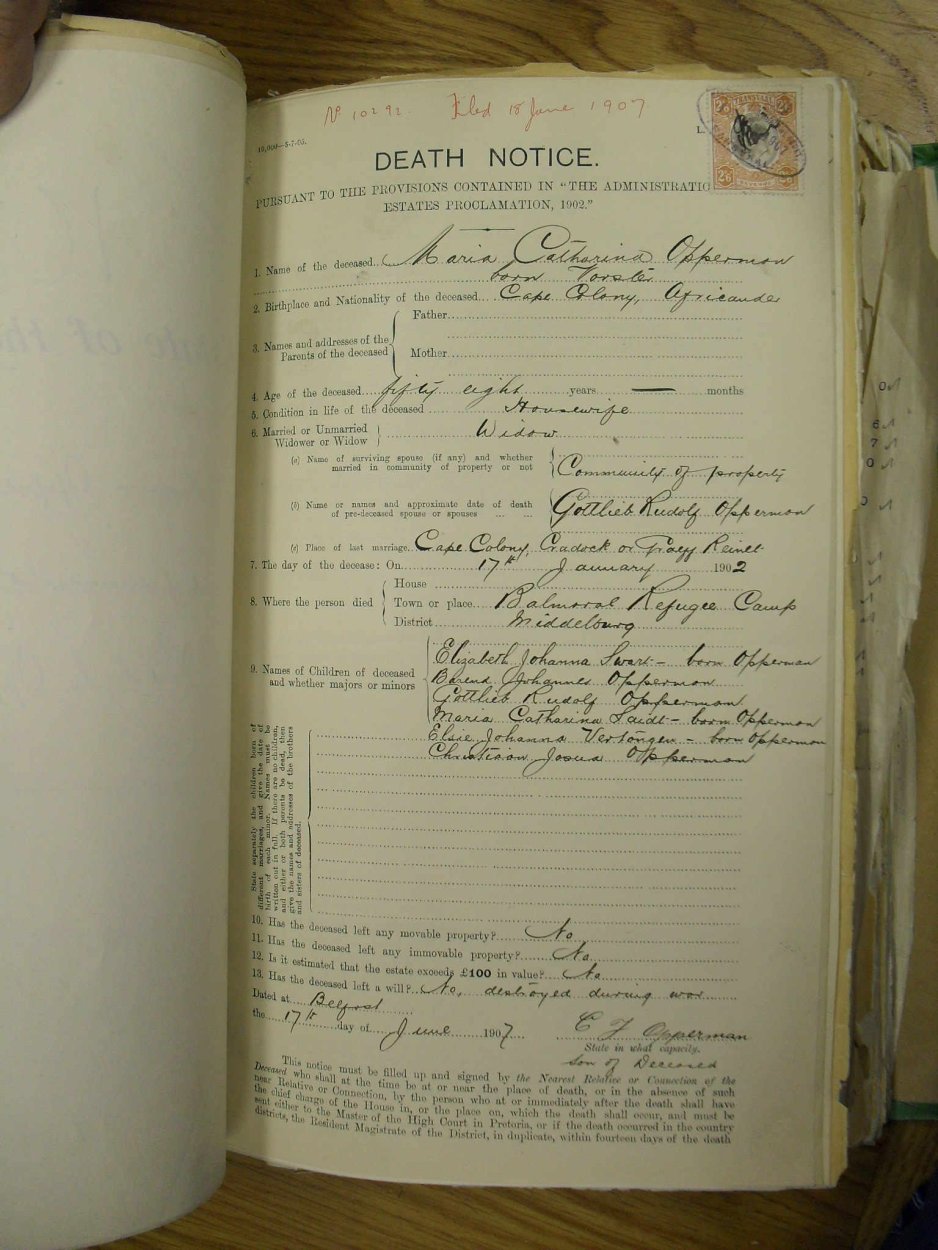 No 10292. Filed 18 June 1907
10,000—5-7-05.
L.
TRANSVAAL
2/6 2/6
DEATH NOTICE.
PURSUANT TO THE PROVISIONS CONTAINED IN "THE ADMINISTRATIO
ESTATES PROCLAMATION, 1902."
1. Name of the deceased Maria Catharina Opperman
born Vorster
2. Birthplace and Nationality of the deceased Cape Colony, Africander
3. Names and addresses of the Parents of the deceased
Father
Mother
4. Age of the deceased fifty eight years — months
5. Condition in life of the deceased Housewife
6. Married or Unmarried
Widower or Widow Widow
(a) Name of surviving spouse (if any) and whether
married in community of property or not Community of property
(b) Name or names and approximate date of death
of pre-deceased spouse or spouses ... ... Gottlieb Rudolf Opperman
(c) Place of last marriage Cape Colony, Cradock or Graaf Reinet
7. The day of the decease: On 17th January 1902
8. Where the person died
House
Town or place Balmoral Refugee Camp
District Middelburg
9. Names of Children of deceased
and whether majors or minors
Elizabeth Johanna Swart - born Opperman
Barend Johannes Opperman
Gottlieb Rudolf Opperman
Maria Catharina - born Opperman
Elsie Johanna - born Opperman
Christiaan Josua Opperman
State separately the children born of
different marriages, and give the date of
birth of each minor. Names must be
written out in full. If there are no children,
and either or both parents be dead, then
give the names and addresses of the brothers
and sisters of deceased.
10. Has the deceased left any movable property? No
11. Has the deceased left any immovable property? No
12. Is it estimated that the estate exceeds £100 in value? No
13. Has the deceased left a will? No, destroyed during war
Dated at Belfast
the 17th day of June 1907
C J Opperman
State in what capacity.
Son of Deceased
This notice must be filled up and signed by the Nearest Relative or Connection of the
Deceased who shall at the time be at or near the place of death, or in the absence of such
near Relative or Connection, by the person who at or immediately after the death shall have
the chief charge of the House in, or the place on, which the death shall occur, and must be
sent either to the Master of the High Court in Pretoria, or if the death occurred in the country
districts, the Resident Magistrate of the District, in duplicate, within fourteen days of the death